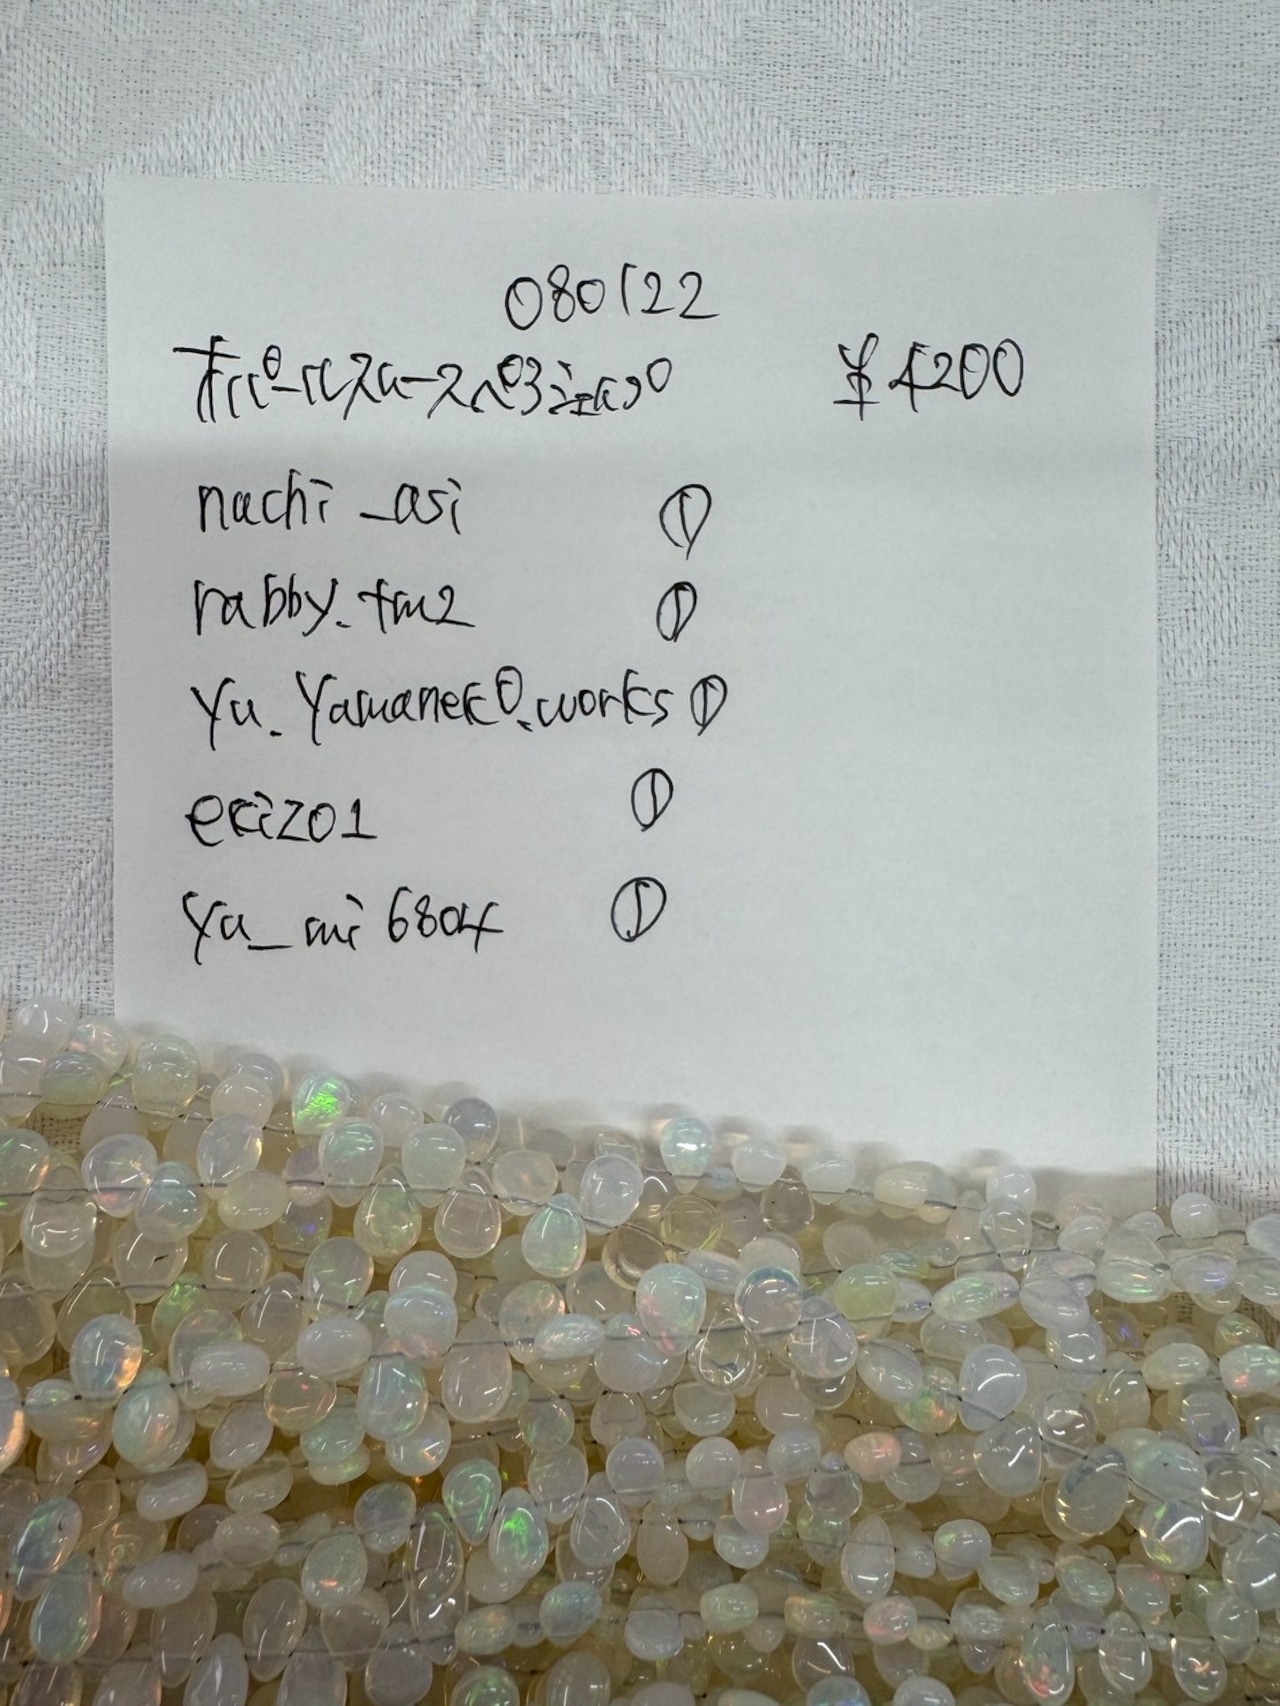 080122
オパールスムースペアシェイプ ¥4200
nachi_asi ①
rabby.tm2 ①
yu.yamaneko.works ①
ekizo1 ①
yu_mi6804 ①